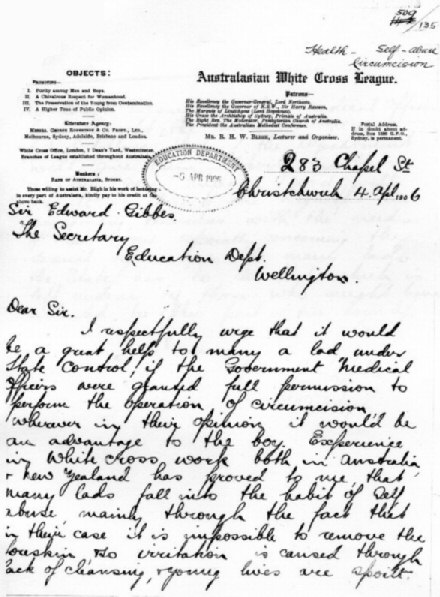 509
/135
Health - Self-abuse
Circumcision
OBJECTS:
PROMOTING—
I. Purity among Men and Boys.
II. A Chivalrous Respect for Womanhood.
III. The Preservation of the Young from Contamination.
IV. A Higher Tone of Public Opinion.
Literature Agency:
Melbourne, Sydney, Adelaide, Brisbane and London.
White Cross Office, London, 7 Dean's Yard, Westminster.
Branches of League established throughout Australasia.
Bankers:
Bank of Australasia, Sydney.
Those willing to assist
in every part of Australasia, kindly pay in his credit at the
above bank.
Australasian White Cross League.
Patrons:
His Excellency the Governor-General, Lord Northcote.
His Excellency the Governor of N.S.W., Sir Harry Rawson.
His Grace the Archbishop of Sydney, Primate of Australia.
The President the Australian Methodist Conference.
Mr. R. H. W. Lecturer and Organiser.
Postal Address.
If in doubt about ad-
dress, Box G.P.O.,
Sydney, is permanent.
EDUCATION DEPARTMENT
-6 APR 1906
283 Chapel St
Christchurch 4 Apl 1906
Sir Edward Gibbes.
The Secretary
Education Dept.
Wellington.
Dear Sir.
I respectfully urge that it would
be a great help to many a lad under
State control, if the Government Medical
officers were granted full permission to
perform the operation of circumcision
wherever in their opinion it would be
an advantage to the boy. Experience
in White Cross work both in Australia
+ New Zealand has proved to me that
many lads fall into the habit of self
abuse mainly through the fact that
in their case it is impossible to remove the
foreskin & so irritation is caused through
lack of cleansing, & young lives are spoilt.